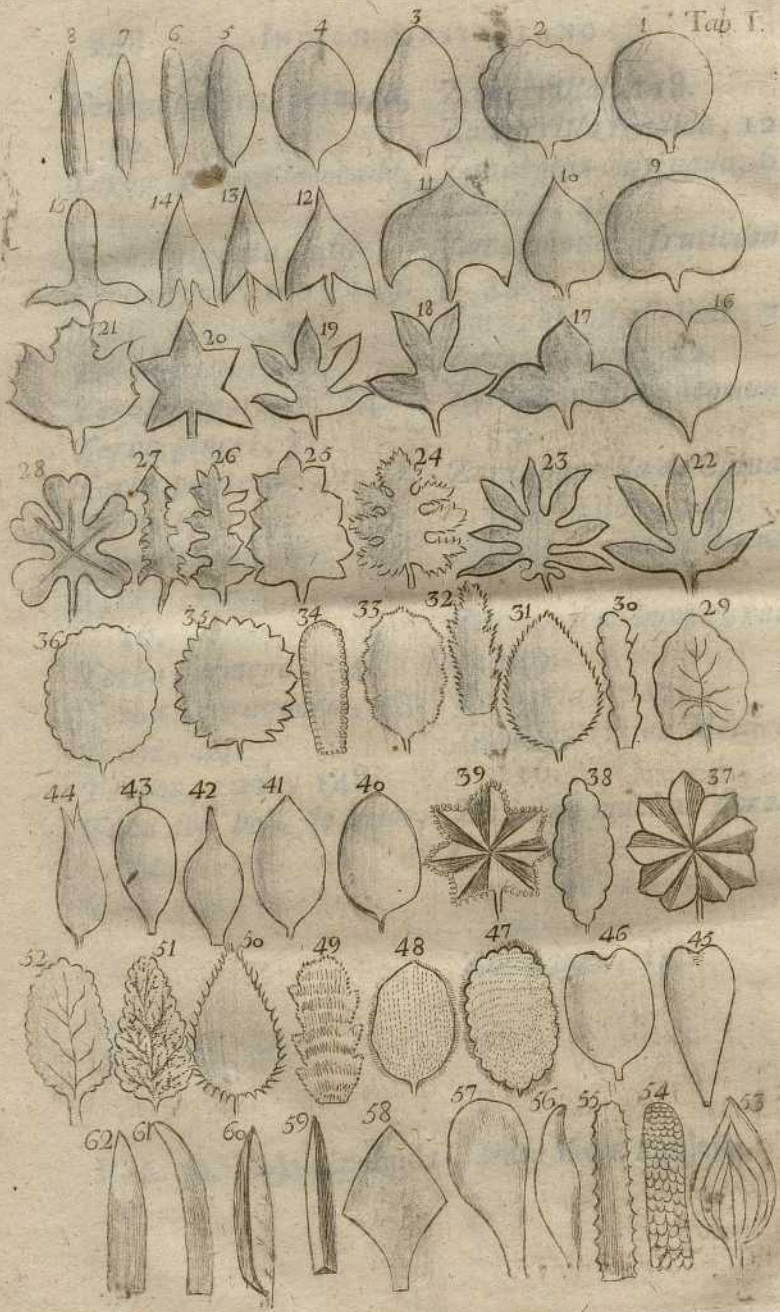 Tab I.
8 7 6 5 4 3 2 1
15 14 13 12 11 10 9
21 20 19 18 17 16
28 27 26 25 24 23 22
36 35 34 33 32 31 30 29
44 43 42 41 40 39 38 37
52 51 50 49 48 47 46 45
62 61 60 59 58 57 56 55 54 53